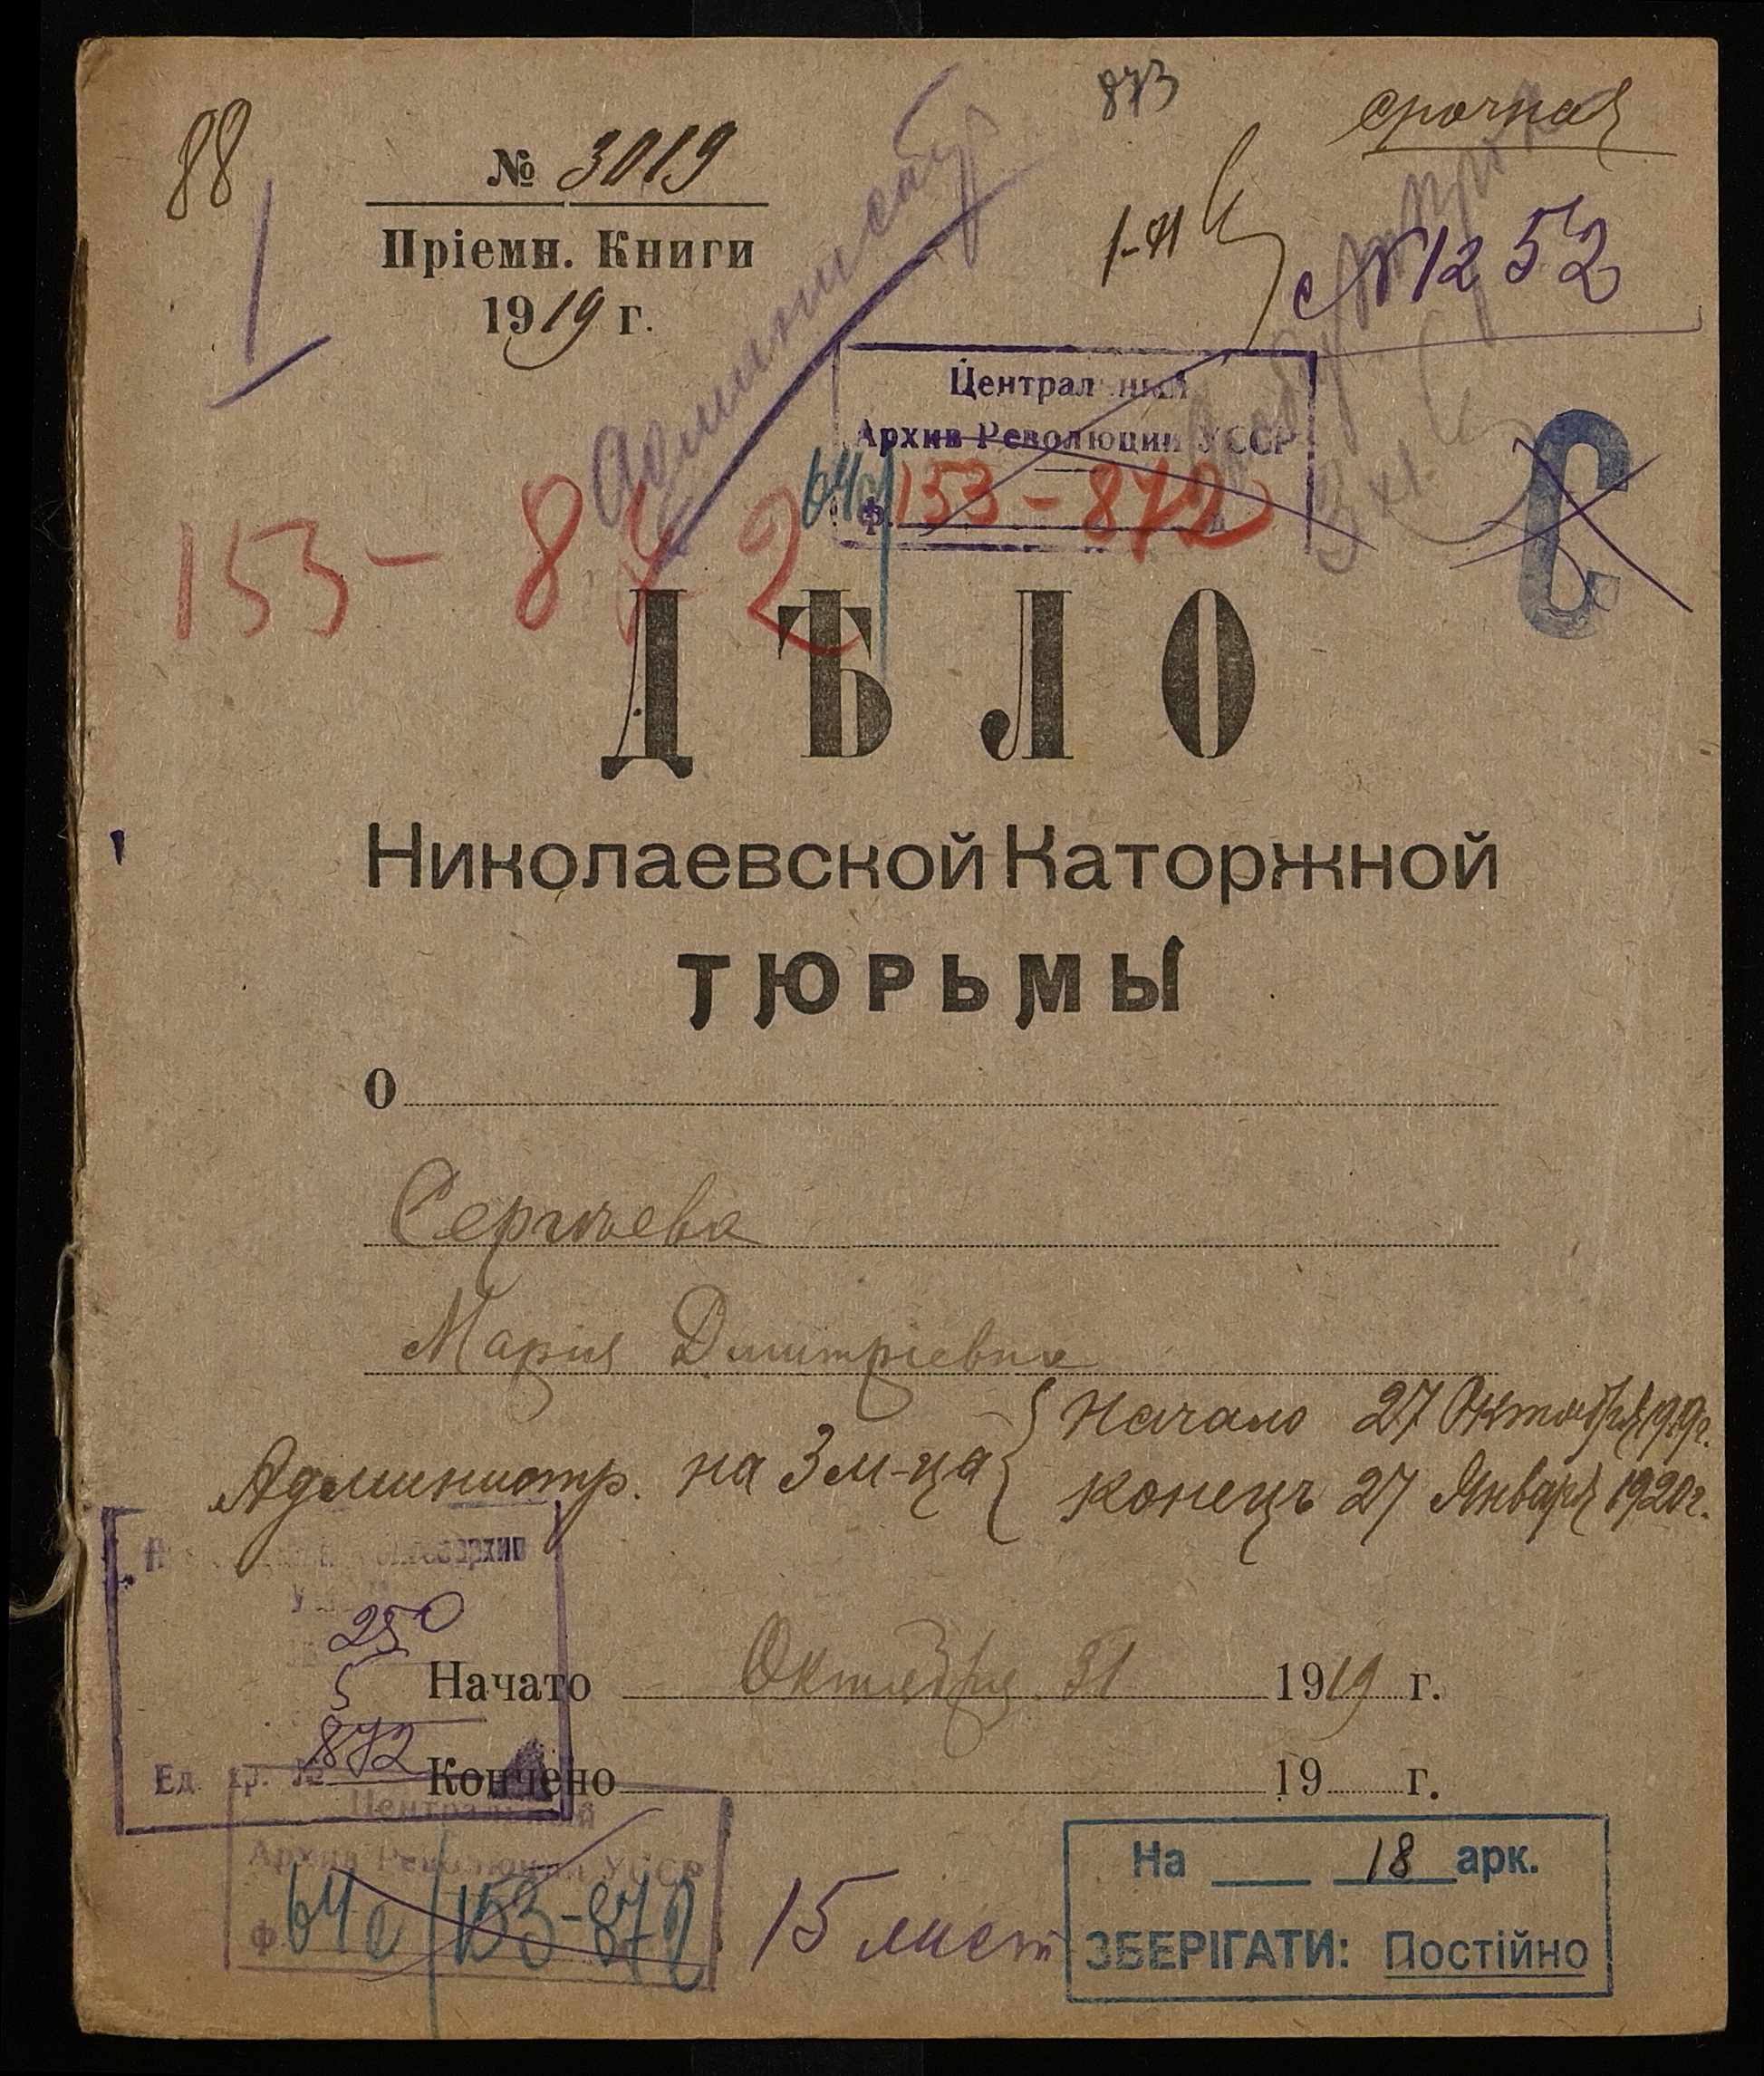 873
срочная
88
№ 3019
Пріемн. Книги
1919 г.
1
№ 1252
Центральный
Архив Революции УССР
64с
ф. 153-872
153-872
С
ДѢЛО
Николаевской Каторжной
ТЮРЬМЫ
О
Сергѣева
Марія Дмитріевна
Администр. на 3 м-ца
Начало 27 Октября 1919г.
Конецъ 27 Января 1920г.
250
5
Начато Октября 31 1919 г.
Ед. хр. № 872
Кончено 19 г.
Центральный
Архив Революции УССР
Ф. 64с 153-872
15 лист
На 18 арк.
ЗБЕРІГАТИ: Постійно